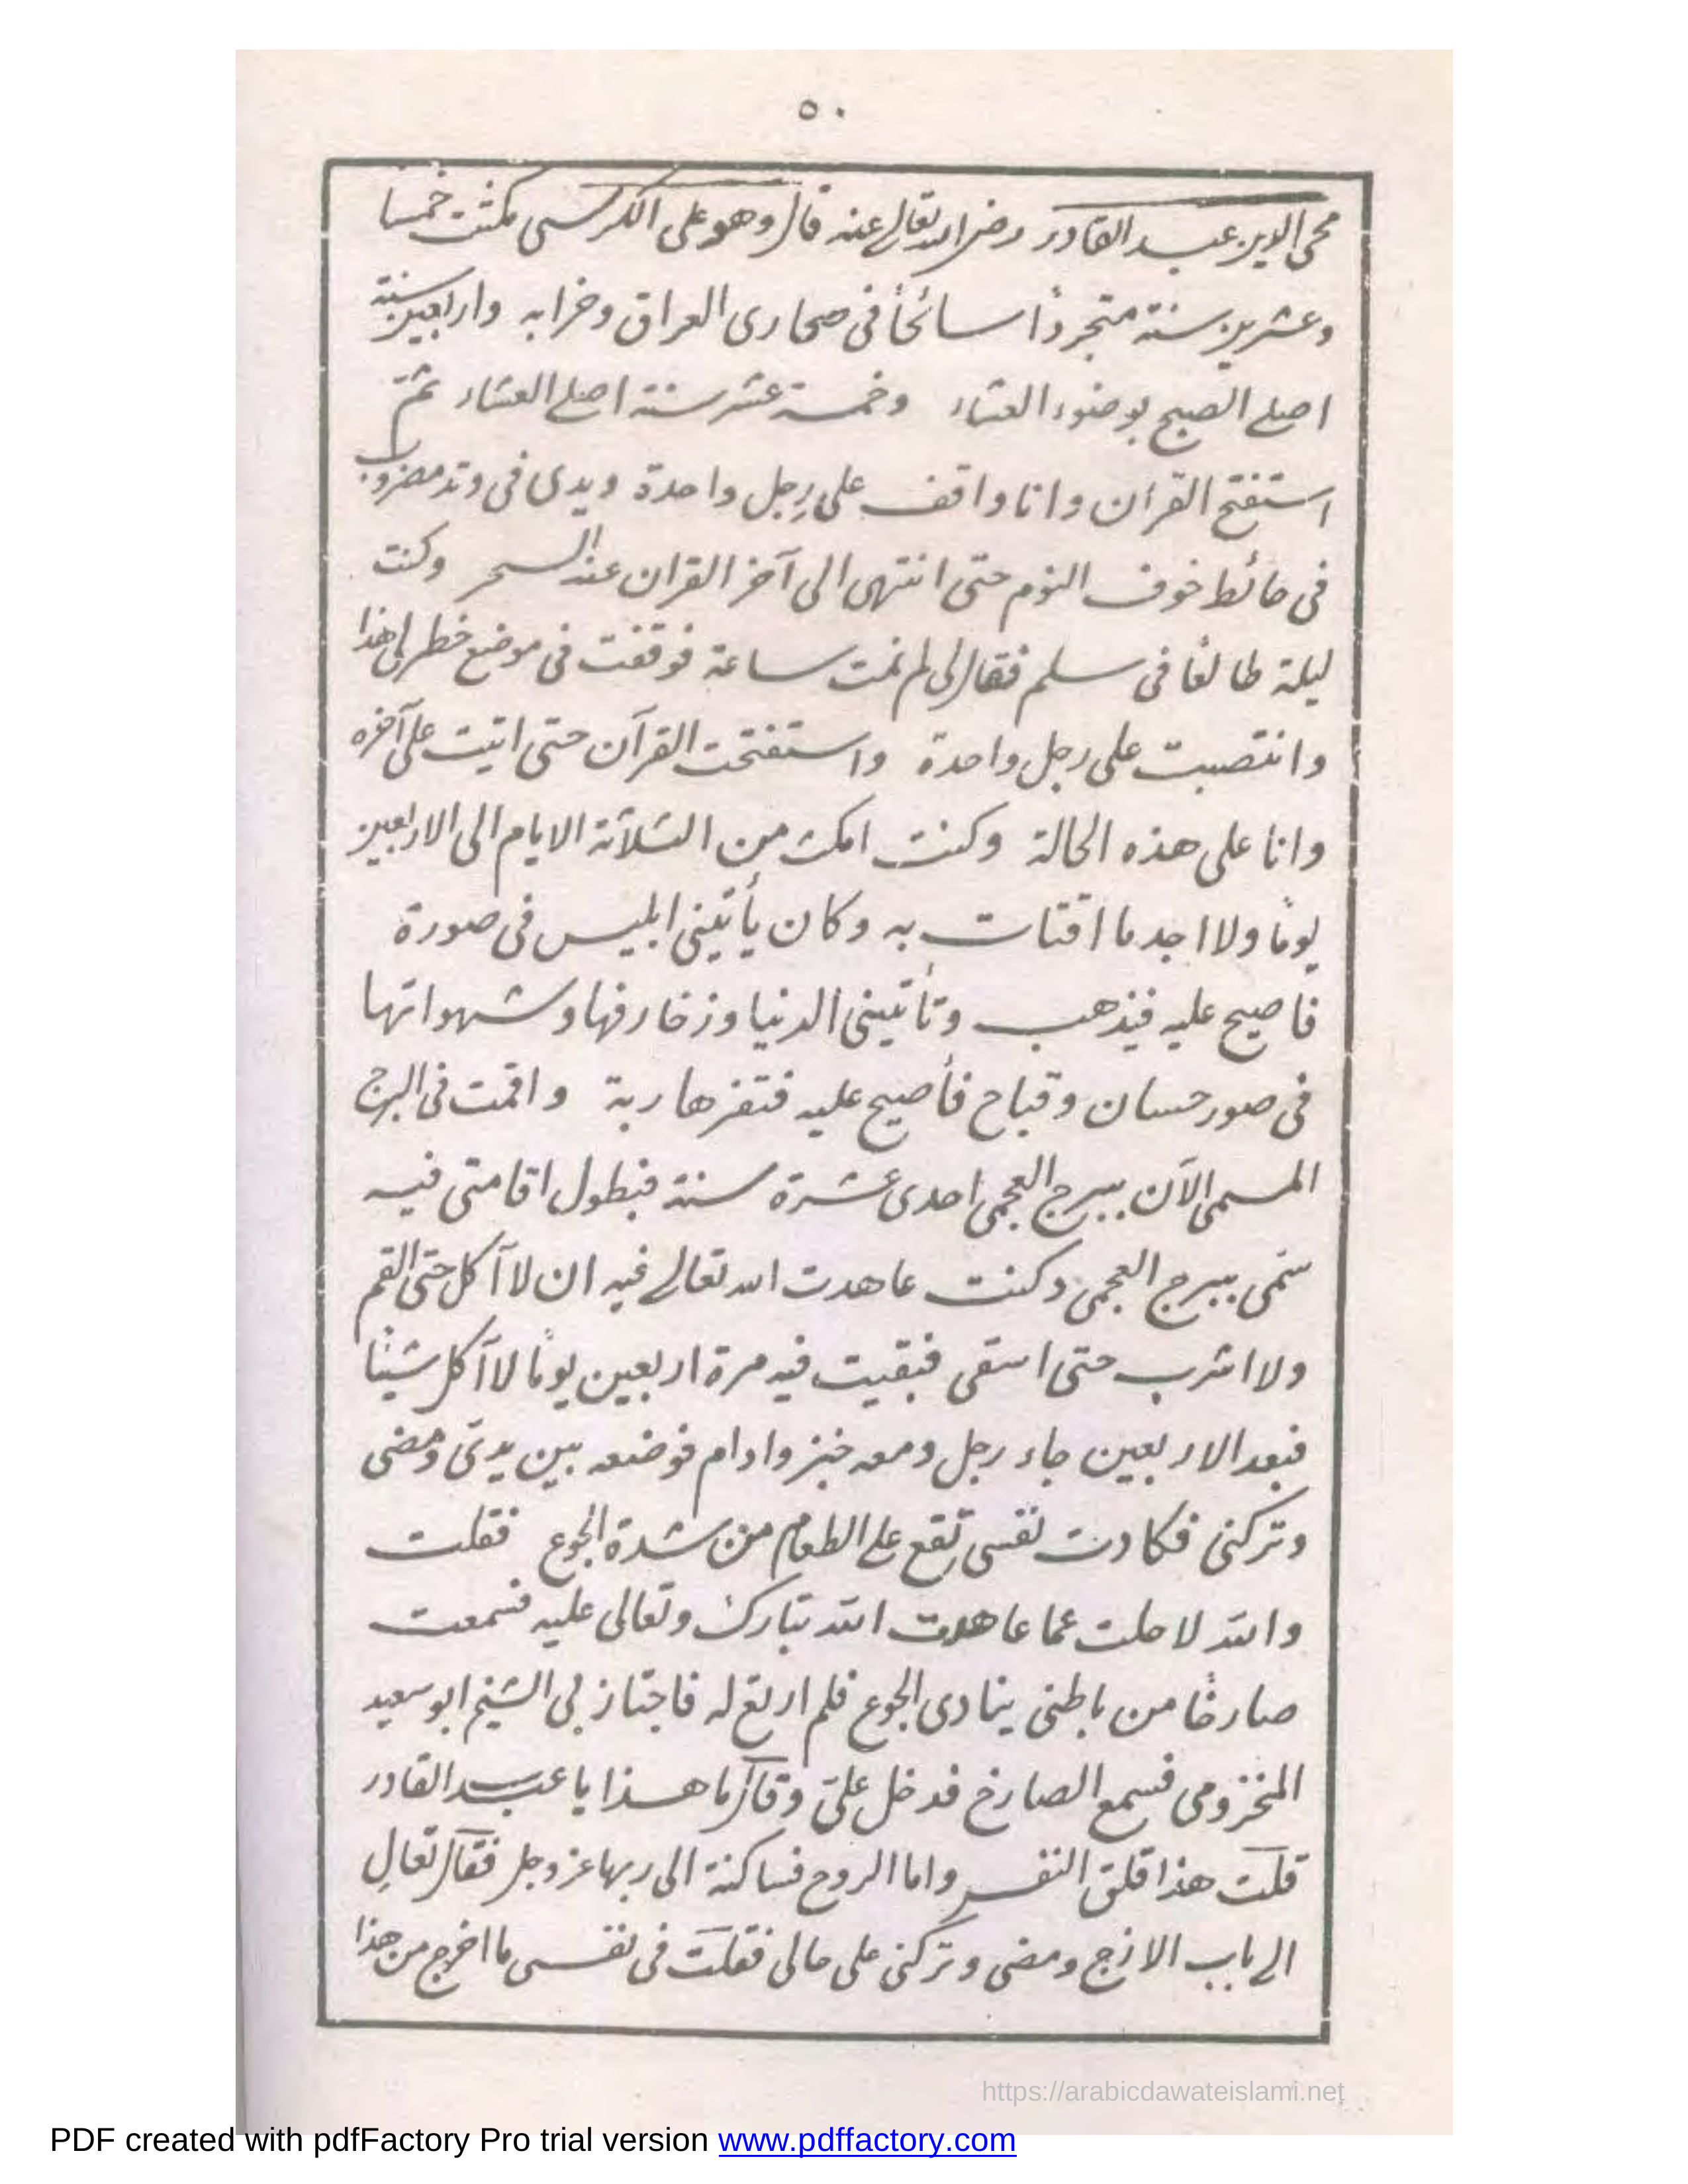 ٥٠
محى الدين عبد القادر رضى الله تعالى عنه قال وهو على الكرسى مكثت خمسا
وعشرين سنة متجردًا سائحًا فى صحارى العراق وخرابه واربعين سنة
اصلى الصبح بوضوء العشاء وخمسة عشر سنة اصلى العشاء ثمّ
استفتح القرأن وانا واقف على رِجل واحدة ويدى فى وتد مضروب
فى حائط خوف النوم حتى انتهى الى آخر القران عند السحر وكنت
ليلة طالعًا فى سلم فقال لى لم نمت ساعة فوقفت فى موضع خطر لى هذا
وانتصبت على رجل واحدة واستفتحت القرآن حتى اتيت على آخره
وانا على هذه الحالة وكنت امكث من الثلاثة الايام الى الاربعين
يومًا ولا اجد ما اقتات به وكان يأتينى ابليس فى صورة
فاصيح عليه فيذهب وتأتينى الدنيا وزخارفها وشهواتها
فى صور حسان وقباح فأصيح عليه فتفر هاربة واقمت فى البرج
المسمى الآن ببرج العجمى احدى عشرة سنة فبطول اقامتى فيه
سمى ببرج العجمى وكنت عاهدت الله تعالى فيه ان لا آكل حتى القم
ولا اشرب حتى اسقى فبقيت فيه مرة اربعين يومًا لا آكل شيئًا
فبعد الاربعين جاء رجل ومعه خبز وادام فوضعه بين يدىّ ومضى
وتركنى فكادت نفسى تقع على الطعام من شدة الجوع فقلت
والله لا حلت عما عاهدت الله تبارك وتعالى عليه فسمعت
صارخًا من باطنى ينادى الجوع فلم ارتع له فاجتاز بى الشيخ ابو سعيد
المخزومى فسمع الصارخ فدخل علىّ وقال ما هذا يا عبد القادر
قلت هذا قلق النفس واما الروح فساكنة الى ربها عز وجل فقال تعالِ
الى باب الازج ومضى وتركنى على حالى فقلت فى نفسى ما اخرج من هذا
https://arabicdawateislami.net
PDF created with pdfFactory Pro trial version www.pdffactory.com